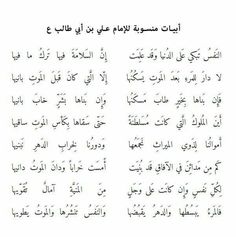 أبيات منسوبة للإمام علي بن أبي طالب ع
النَفسُ تَبكي عَلى الدُنيا وَقَد عَلِمَت إِنَّ السَلامَةَ فيها تَركُ ما فيها
لا دارَ لِلمَرءِ بَعدَ المَوتِ يَسكُنُها إِلّا الَّتي كانَ قَبلَ المَوتِ بانيها
فَإِن بَناها بِخَيرٍ طابَ مَسكَنُها وَإِن بَناها بِشَرٍّ خابَ بانيها
أَينَ المُلوكُ الَّتي كانَت مُسَلطَنَةً حَتّى سَقاها بِكَأسِ المَوتِ ساقيها
أَموالُنا لِذَوي الميراثِ نَجمَعُها وَدورُنا لِخَرابِ الدَهرِ نَبنيها
كَم مِن مَدائِنَ في الآفاقِ قَد بُنِيَت أَمسَت خَراباً وَدانَ المَوتُ دانيها
لِكُلِّ نَفسٍ وَإِن كانَت عَلى وَجَلٍ مِنَ المَنِيَّةِ آمالٌ تُقَوّيها
فَالمَرءُ يَبسُطُها وَالدَهرُ يَقبُضُها وَالنَفسُ تَنشُرُها وَالمَوتُ يَطويها